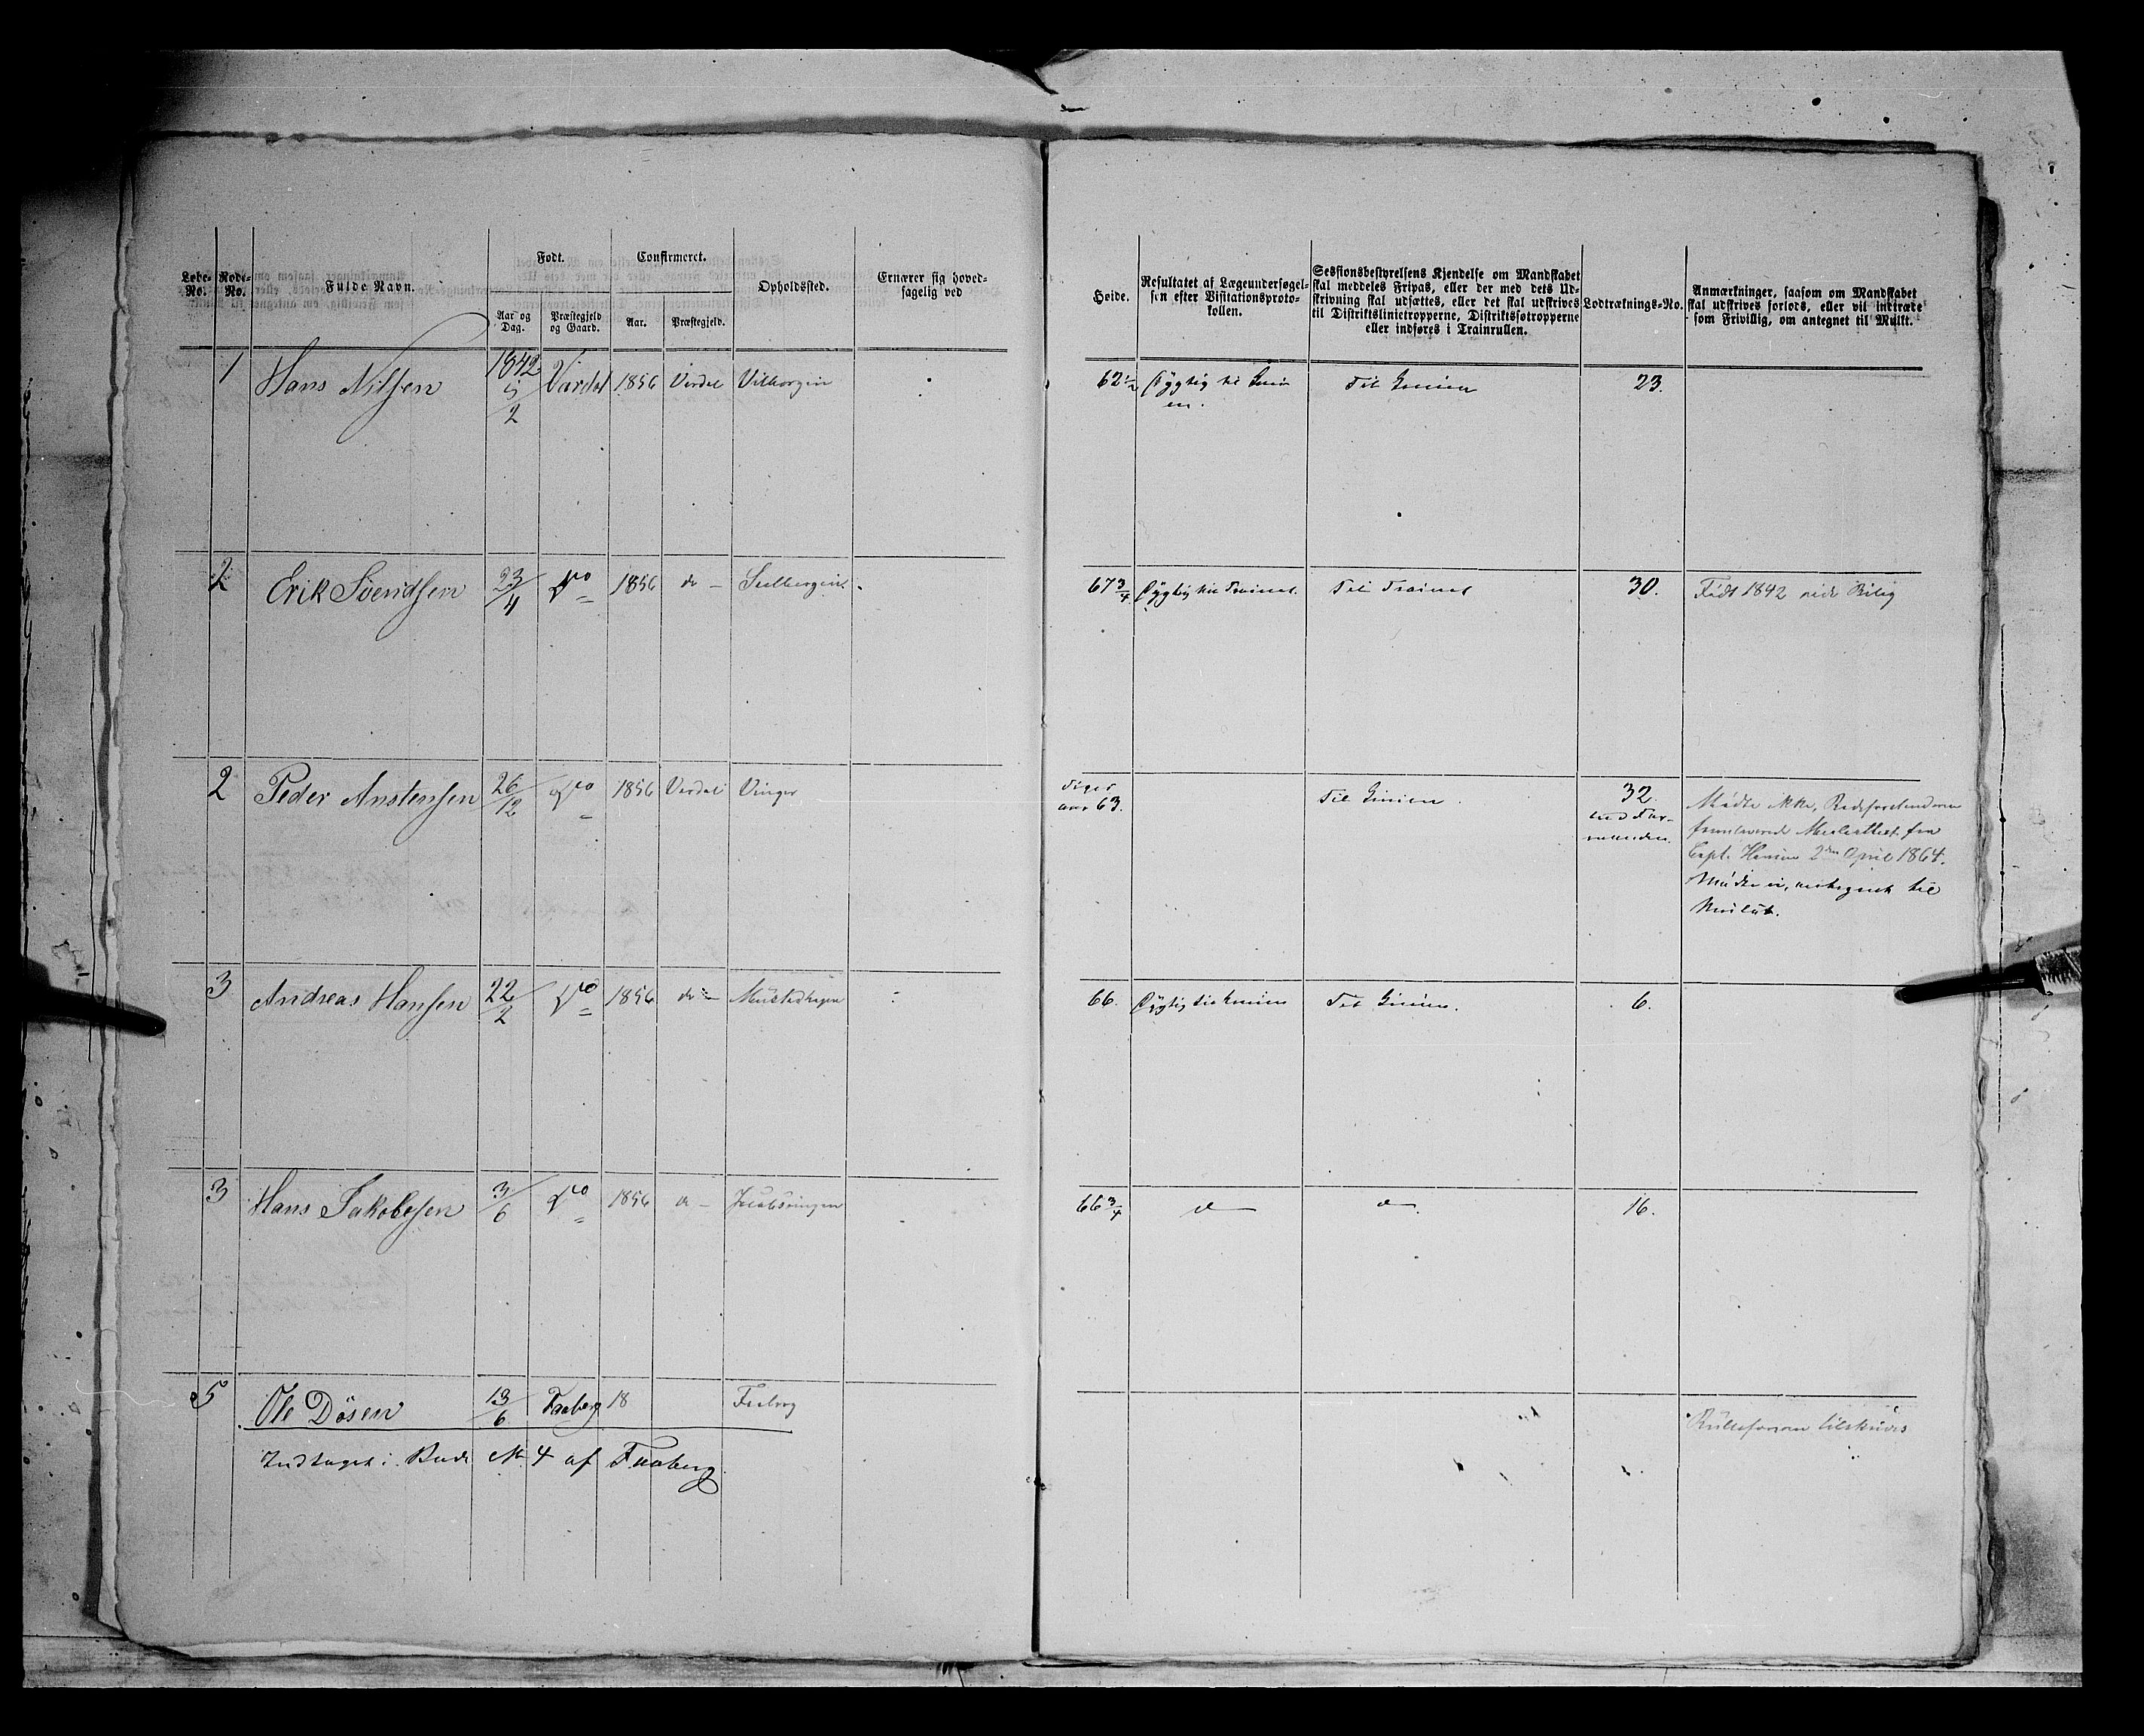 Løbe-No. Rode-No. Fulde Navn. Født. Confirmeret. Opholdssted. Ernærer sig hoved-
sagelig ved
Aar og Dag. Præstegjeld og Gaard. Aar. Præstegjeld.
Høide. Resultatet af Lægeundersøgel-
sen efter Visitationsproto-
kollen.
Sessionsbestyrelsens Kjendelse om Mandskabet
skal meddeles Fripas, eller der med dets Ud-
skrivning skal udsættes, eller det skal udskrives
til Distriktslinietropperne, Distriktssøtropperne
eller indføres i Trainrullen.
Lodtræknings-No.
Anmærkninger, saasom om Mandskabet
skal udskrives forlods, eller vil indtræde
som Frivillig, om antegnet til Mulkt.
1 Hans Nilssen 1842 5/2 Vardal 1856 Vardal 62 1/2 Dygtig til Linien. Til Linien 23.
2 Erik Svendsen 23/4 Do 1856 do 67 3/4 Dygtig til Trainet. Til Trainet 30. Født 1842 vide Bilag
2 Peder Anstensen 26/12 Do 1856 Vardal Vinger
aar 63. Til Linien. 32.
Mødte ikke,
fra
Capt. 2den April 1864.
Mødte ei, antegnet til
Mulct.
3 Andreas Hansen 22/2 Do 1856 do Mustadhagen 66. Dygtig til Linien Til Linien. 6.
3 Hans Jakobsen 3/6 Do 1856 do 66 3/4 do do 16.
5 Ole Dösen 13/6 Faaberg 18 Faaberg
Indtaget i Rode No 4 af Faaberg.
Rulleføreren tilskrives